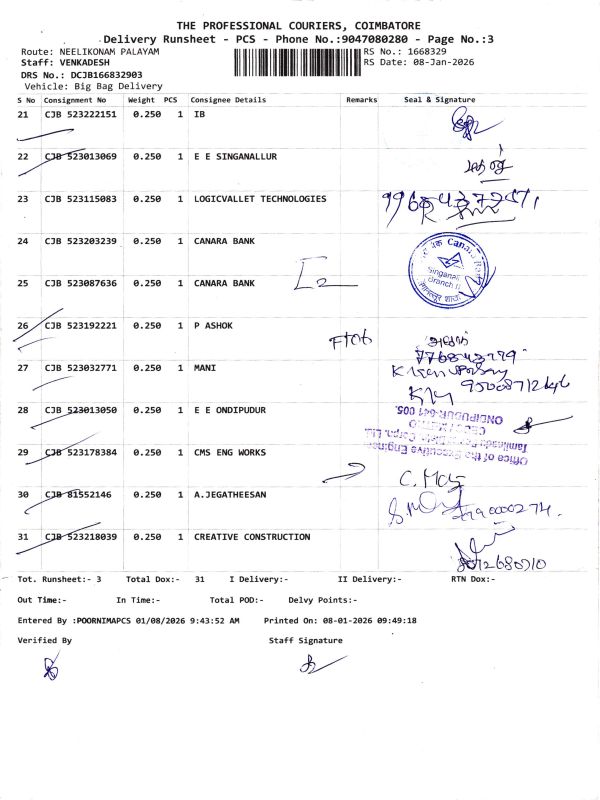 THE PROFESSIONAL COURIERS, COIMBATORE
Delivery Runsheet - PCS - Phone No.:9047080280 - Page No.:3
Route: NEELIKONAM PALAYAM
RS No.: 1668329
Staff: VENKADESH
RS Date: 08-Jan-2026
DRS No.: DCJB166832903
Vehicle: Big Bag Delivery
S No Consignment No Weight PCS Consignee Details Remarks Seal & Signature
21 CJB 523222151 0.250 1 IB
22 CJB 523013069 0.250 1 E E SINGANALLUR
23 CJB 523115083 0.250 1 LOGICVALLET TECHNOLOGIES
24 CJB 523203239 0.250 1 CANARA BANK
Canara Bank
Singanallur
Branch II
25 CJB 523087636 0.250 1 CANARA BANK
26 CJB 523192221 0.250 1 P ASHOK
27 CJB 523032771 0.250 1 MANI
28 CJB 523013050 0.250 1 E E ONDIPUDUR
Office of the Executive Engineer
ONDIPUDUR-641 005.
29 CJB 523178384 0.250 1 CMS ENG WORKS
30 CJB 81552146 0.250 1 A.JEGATHEESAN
31 CJB 523218039 0.250 1 CREATIVE CONSTRUCTION
Tot. Runsheet:- 3 Total Dox:- 31 I Delivery:- II Delivery:- RTN Dox:-
Out Time:- In Time:- Total POD:- Delvy Points:-
Entered By :POORNIMAPCS 01/08/2026 9:43:52 AM Printed On: 08-01-2026 09:49:18
Verified By Staff Signature